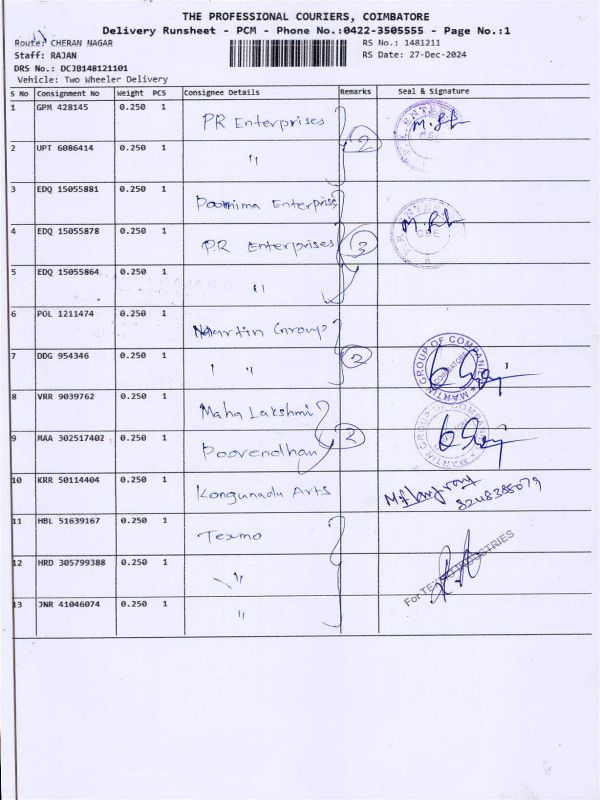 THE PROFESSIONAL COURIERS, COIMBATORE
Delivery Runsheet - PCM - Phone No.:0422-3505555 - Page No.:1
Route: CHERAN NAGAR
RS No.: 1481211
Staff: RAJAN
RS Date: 27-Dec-2024
DRS No.: DCJB148121101
Vehicle: Two Wheeler Delivery
S No Consignment No Weight PCS Consignee Details Remarks Seal & Signature
1 GPM 428145 0.250 1 PR Enterprises
2 UPT 6086414 0.250 1 " 2
3 EDQ 15055881 0.250 1 Poornima Enterprises
4 EDQ 15055878 0.250 1 P.R Enterprises 3
5 EDQ 15055864 0.250 1 "
6 POL 1211474 0.250 1 Martin Group
7 DDG 954346 0.250 1 " 2 MARTIN GROUP OF COMPANIES COIMBATORE
8 VRR 9039762 0.250 1 Maha Lakshmi
9 MAA 302517402 0.250 1 Poovendhan 2
10 KRR 50114404 0.250 1 Kongunadu Arts
11 HBL 51639167 0.250 1 Texmo
12 HRD 305799388 0.250 1 " For TEXMO INDUSTRIES
13 JNR 41046074 0.250 1 "